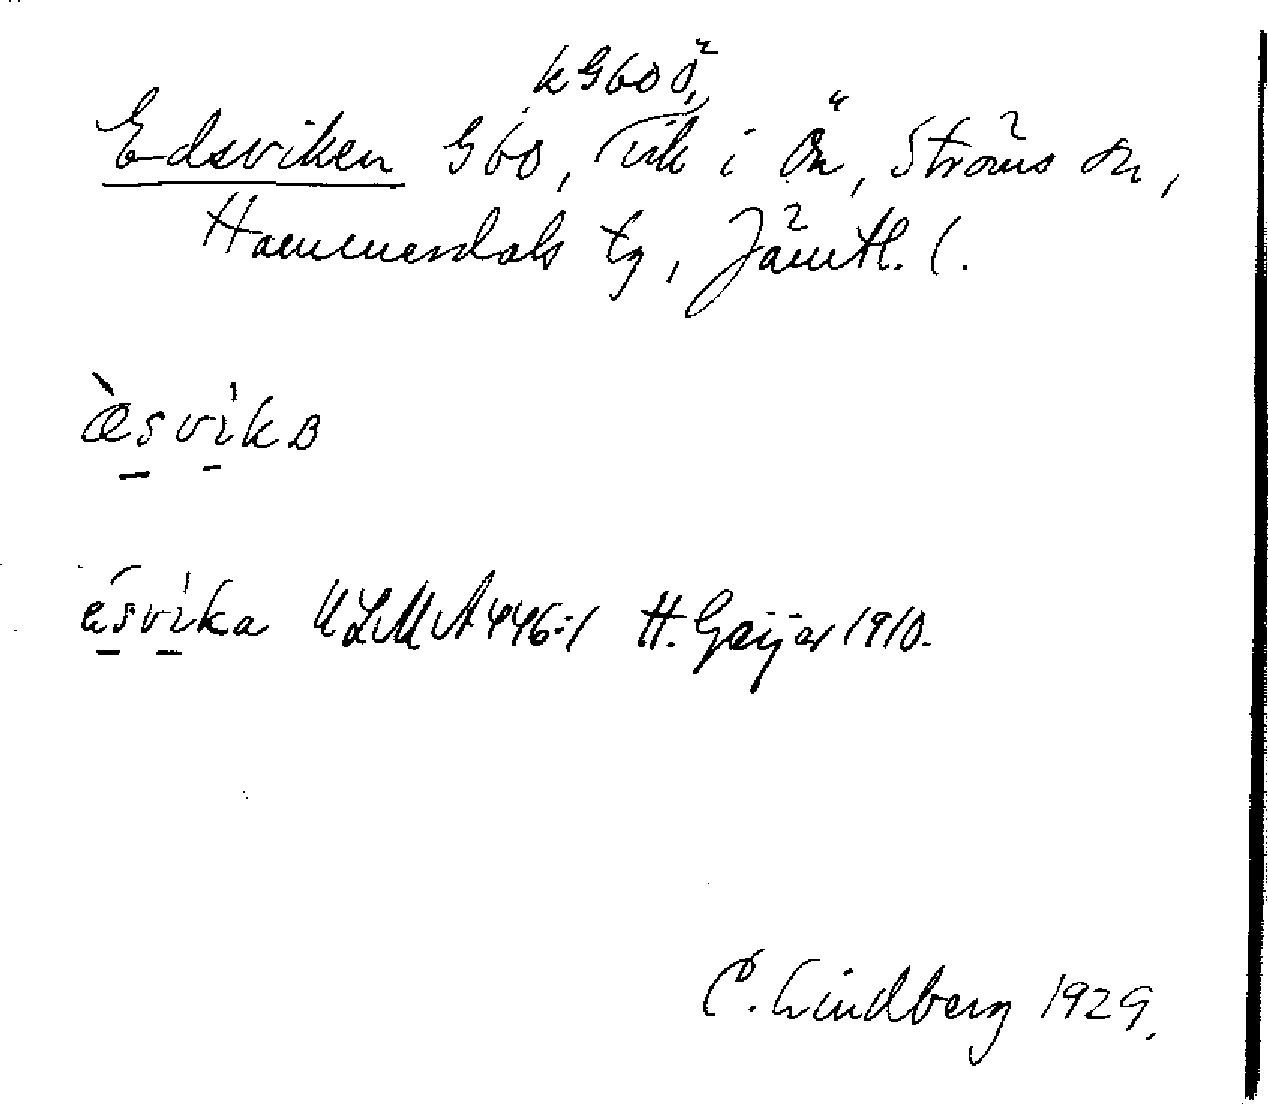 k G60 Ö,
Edsviken G60, vik i Ön, Ströms sn,
Hammerdals tg, Jämtl. l.
æ̀svikɐ
ésvika ULMA 446:1 H. Geijer 1910.
C. Lindberg 1929.